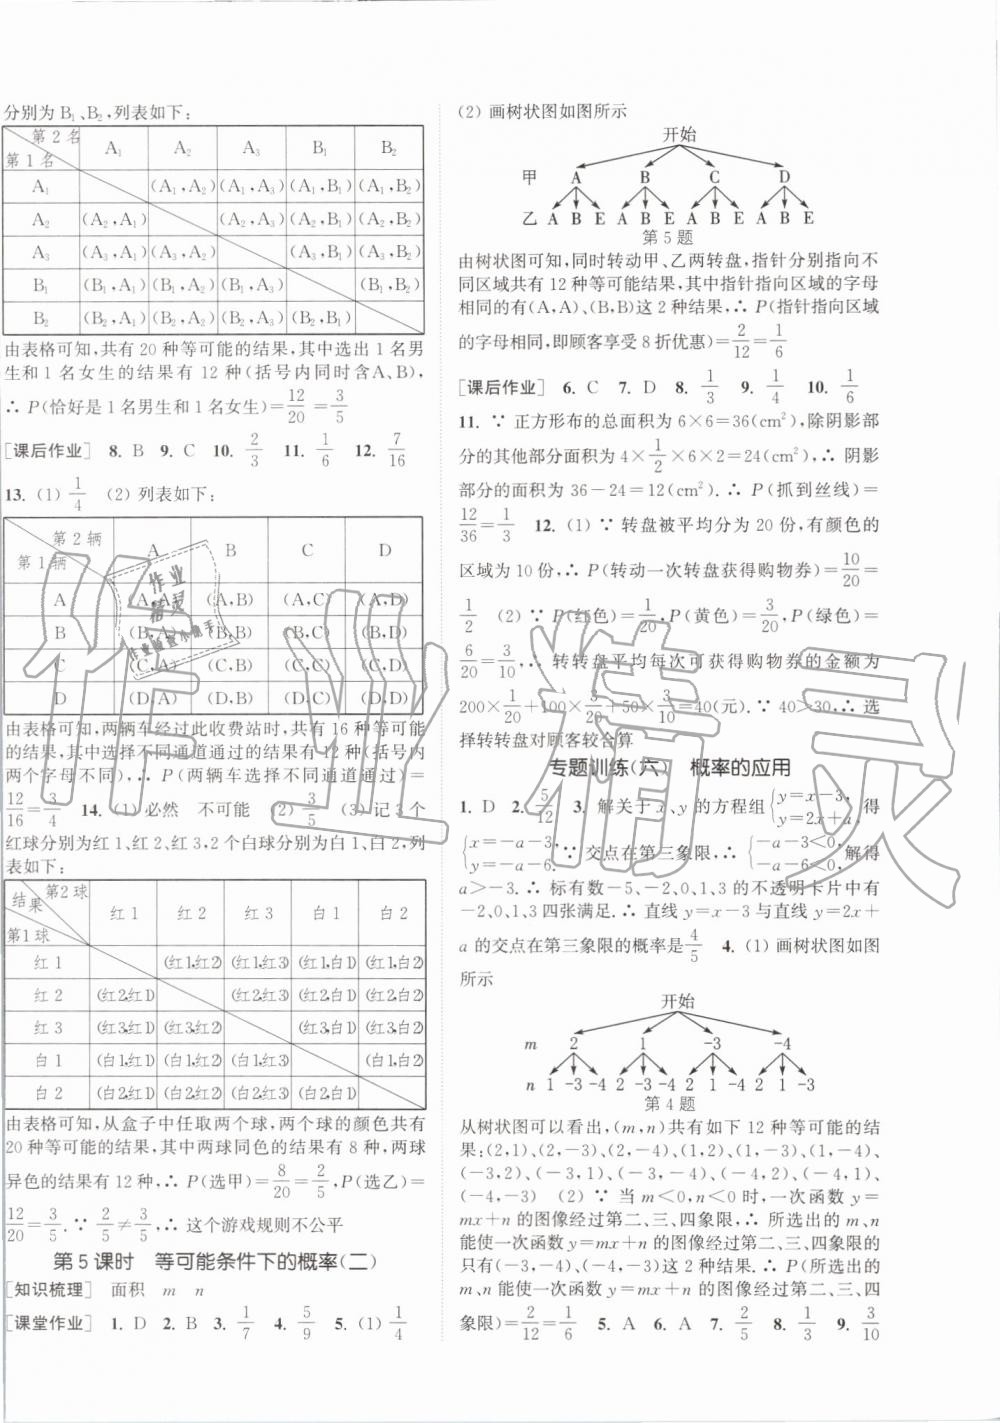 分别为 B₁、B₂,列表如下:
第 2 名
第 1 名
A₁ A₂ A₃ B₁ B₂
A₁ (A₁,A₂) (A₁,A₃) (A₁,B₁) (A₁,B₂)
A₂ (A₂,A₁) (A₂,A₃) (A₂,B₁) (A₂,B₂)
A₃ (A₃,A₁) (A₃,A₂) (A₃,B₁) (A₃,B₂)
B₁ (B₁,A₁) (B₁,A₂) (B₁,A₃) (B₁,B₂)
B₂ (B₂,A₁) (B₂,A₂) (B₂,A₃) (B₂,B₁)
由表格可知,共有 20 种等可能的结果,其中选出 1 名男
生和 1 名女生的结果有 12 种(括号内同时含A、B),
∴ P(恰好是 1 名男生和 1 名女生)=12/20=3/5
[课后作业] 8. B 9. C 10. 2/3 11. 1/6 12. 7/16
13. (1) 1/4 (2) 列表如下:
第 2 辆
第 1 辆
A B C D
A (A,A) (A,B) (A,C) (A,D)
B (B,A) (B,B) (B,C) (B,D)
C (C,A) (C,B) (C,C) (C,D)
D (D,A) (D,B) (D,C) (D,D)
由表格可知,两辆车经过此收费站时,共有 16 种等可能
的结果,其中选择不同通道通过的结果有 12 种(括号内
两个字母不同),∴ P(两辆车选择不同通道通过)=
12/16=3/4 14. (1) 必然 不可能 (2) 3/5 (3) 记 3 个
红球分别为红 1、红 2、红 3,2 个白球分别为白 1、白 2,列
表如下:
结果 第2球
第1球
红 1 红 2 红 3 白 1 白 2
红 1 (红1,红2) (红1,红3) (红1,白1) (红1,白2)
红 2 (红2,红1) (红2,红3) (红2,白1) (红2,白2)
红 3 (红3,红1) (红3,红2) (红3,白1) (红3,白2)
白 1 (白1,红1) (白1,红2) (白1,红3) (白1,白2)
白 2 (白2,红1) (白2,红2) (白2,红3) (白2,白1)
由表格可知,从盒子中任取两个球,两个球的颜色共有
20 种等可能的结果,其中两球同色的结果有 8 种,两球
异色的结果有 12 种,∴ P(选甲)=8/20=2/5,P(选乙)=
12/20=3/5.∵ 2/5≠3/5,∴ 这个游戏规则不公平
第 5 课时 等可能条件下的概率(二)
[知识梳理] 面积 m n
[课堂作业] 1. D 2. B 3. 1/7 4. 5/9 5. (1) 1/4
(2) 画树状图如图所示
开始
甲 A B C D
乙 A B E A B E A B E A B E
第 5 题
由树状图可知,同时转动甲、乙两转盘,指针分别指向不
同区域共有 12 种等可能结果,其中指针指向区域的字母
相同的有(A,A)、(B,B)这 2 种结果,∴ P(指针指向区域
的字母相同,即顾客享受 8 折优惠)=2/12=1/6
[课后作业] 6. C 7. D 8. 1/3 9. 1/4 10. 1/6
11. ∵ 正方形布的总面积为 6×6=36(cm²),除阴影部
分的其他部分面积为 4×1/2×6×2=24(cm²),∴ 阴影
部分的面积为 36-24=12(cm²).∴ P(抓到丝线)=
12/36=1/3 12. (1) ∵ 转盘被平均分为 20 份,有颜色的
区域为 10 份,∴ P(转动一次转盘获得购物券)=10/20=
1/2 (2) ∵ P(红色)=1/20,P(黄色)=3/20,P(绿色)=
6/20=3/10,∴ 转转盘平均每次可获得购物券的金额为
200×1/20+100×3/20+50×3/10=40(元).∵ 40>30,∴ 选
择转转盘对顾客较合算
专题训练(六) 概率的应用
1. D 2. 5/12 3. 解关于 x、y 的方程组{y=x-3, y=2x+a,得
{x=-a-3, y=-a-6.∵ 交点在第三象限,∴ {-a-3<0, -a-6<0,解得
a>-3.∴ 标有数-5、-2、0、1、3 的不透明卡片中有
-2、0、1、3四张满足.∴ 直线 y=x-3 与直线 y=2x+
a 的交点在第三象限的概率是4/5 4. (1) 画树状图如图
所示
开始
m 2 1 -3 -4
n 1 -3 -4 2 -3 -4 2 1 -4 2 1 -3
第 4 题
从树状图可以看出,(m,n)共有如下 12 种等可能的结
果:(2,1)、(2,-3)、(2,-4)、(1,2)、(1,-3)、(1,-4)、
(-3,2)、(-3,1)、(-3,-4)、(-4,2)、(-4,1)、
(-4,-3) (2) ∵ 当 m<0,n<0 时,一次函数 y=
mx+n 的图像经过第二、三、四象限,∴ 所选出的 m、n
能使一次函数 y=mx+n 的图像经过第二、三、四象限的
有(-3,-4)、(-4,-3)这 2 种结果.∴ P(所选出的
m、n 能使一次函数 y=mx+n 的图像经过第二、三、四
象限)=2/12=1/6 5. A 6. A 7. 2/5 8. 1/3 9. 3/10
作业精灵
作业
精灵
作业检查小助手